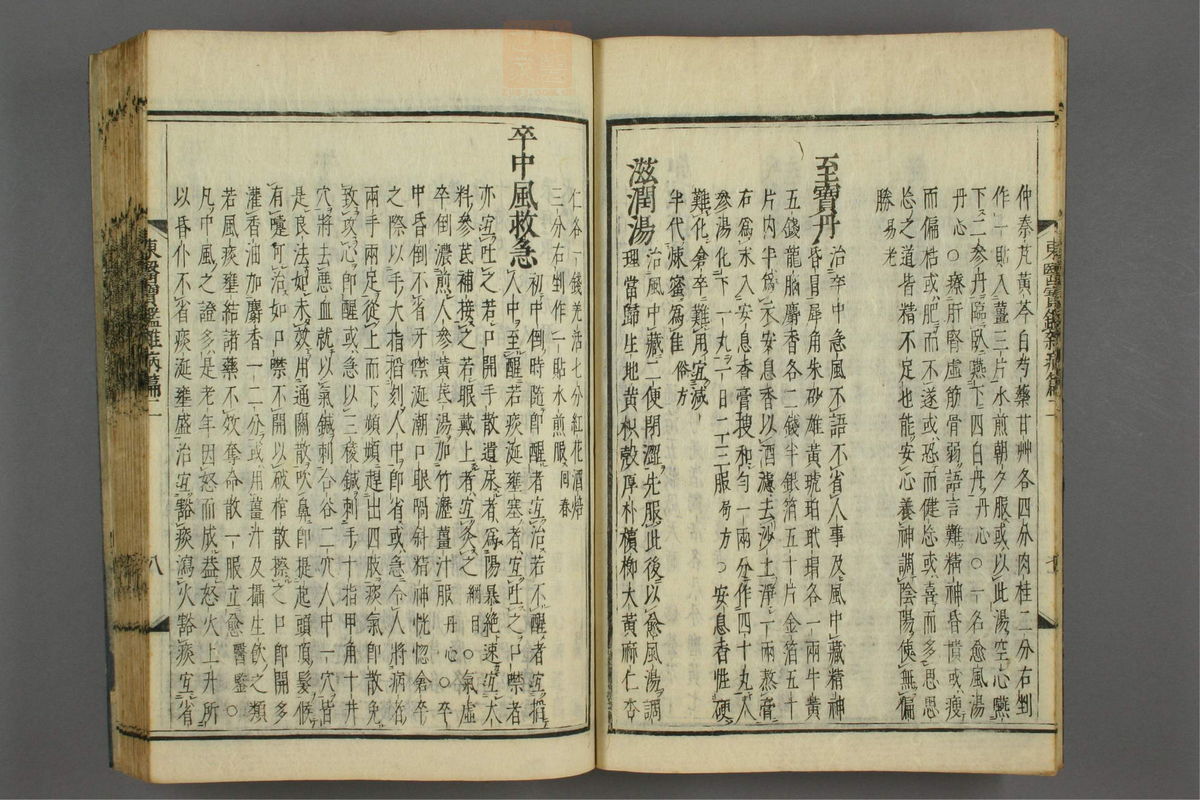 仲秦艽黃芩白芍藥甘艸各四分肉桂二分右剉
作一貼入薑三片水煎朝夕服或以此湯空心嚥
下二參丹臨臥嚥下四白丹丹心○一名愈風湯
丹心○療肝腎虛筋骨弱語言難精神昏憒或瘦
而偏枯或肥而不遂或恐而健忘或喜而多思思
忘之道皆精不足也能安心養神調陰陽使無偏
勝易老
至寶丹
治卒中急風不語不省人事及風中藏精神
昏冒犀角朱砂雄黃琥珀玳瑁各一兩牛黃
五錢龍腦麝香各二錢半銀箔五十片金箔五十
片內半爲衣安息香以酒濾去沙土淨一兩熬膏
右爲末入安息香膏搜和勻一兩分作四十丸人
參湯化下一丸一日二三服局方○安息香性硬
難化倉卒難用宜減
半代煉蜜爲佳俗方
滋潤湯
治風中藏二便閉澀先服此後以愈風湯調
理當歸生地黃枳殼厚朴檳柳大黃麻仁杏
東醫寶鑑雜病篇二
七
仁各一錢羗活七分紅花酒焙
三分右剉作一貼水煎服回春
卒中風救急
初中倒時隨卽醒者宜治若不醒者宜掐
人中至醒若痰涎壅塞者宜吐之口噤者
亦宜吐之若口開手散遺尿者爲陽暴絶速宜大
料參芪補接之若眼戴上者宜灸之綱目○氣虛
卒倒濃煎人參黃芪湯加竹瀝薑汁服丹心○卒
中昏倒不省牙噤涎潮口眼喎斜精神恍惚倉卒
之際以手大指掐刻人中卽省或急令人將病者
兩手兩足從上而下頻頻趕出四肢痰氣卽散免
致攻心卽醒或急以三稜鍼刺手十指甲角十井
穴將去惡血就以氣鍼刺合谷二穴人中一穴皆
是良法如未效用通關散吹鼻卽提起頭頂髮候
有嚏可治如口噤不開以破棺散擦之口卽開多
灌香油加麝香一二分或用薑汁及攝生飮之類
若風痰壅結諸藥不效奪命散一服立愈醫鑑○
凡中風之證多是老年因怒而成盖怒火上升所
以昏仆不省痰涎壅盛治宜豁痰瀉火豁痰宜省
東醫寶鑑雜病篇二
八